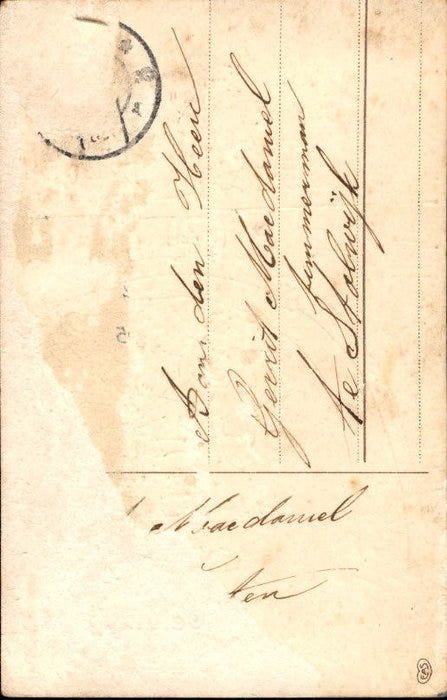 Aan den Heer
Gerrit Macdaniel
timmerman
te Stolwijk
Macdaniel
ten